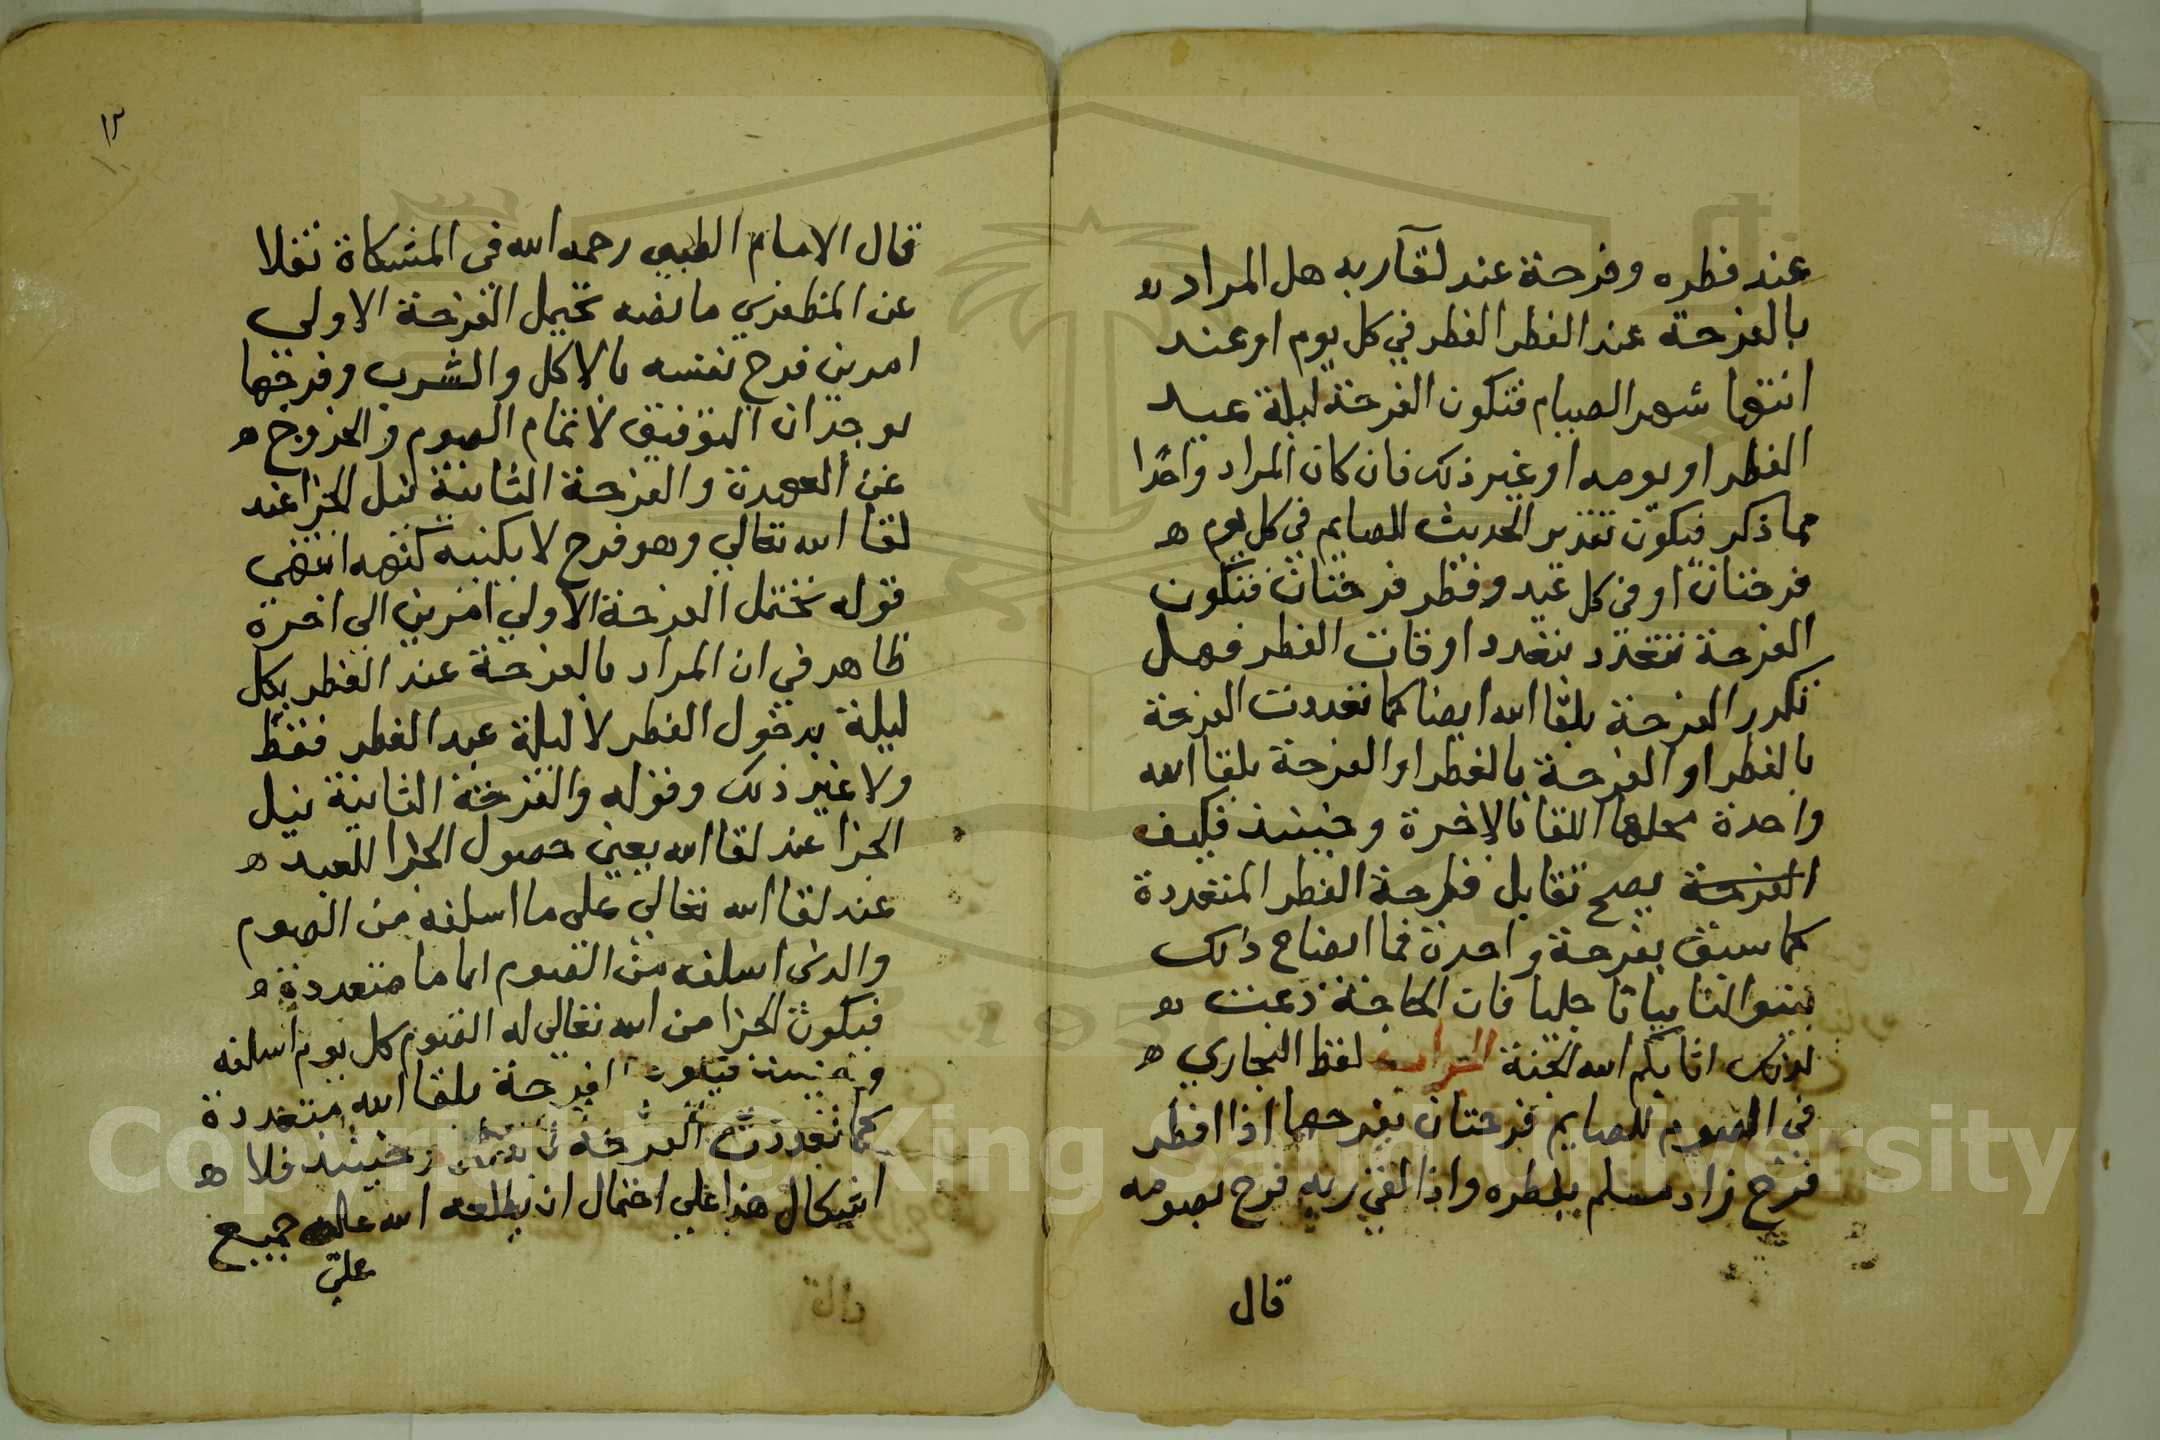 عند فطره وفرحة عند لقآ ربه هل المراد
بالفرحة عند الفطر الفطر في كل يوم او عند
انتها شهر الصيام فتكون الفرحة ليلة عيد
الفطر او يومه او غير ذلك فان كان المراد واحدا
مما ذكر فيكون تقدير الحديث للصايم في كل يوم ه
فرحتان او في كل عيد وفطر فرحتان فتكون
الفرحة تتعدد بتعدد اوقات الفطر فهل
تكرر الفرحة بلقا الله ايضا كما تعددت الفرحة
بالفطر او الفرحة بالفطر او الفرحة بلقا الله
واحدة محلها اللقا بالاخرة وحينيذ فكيف
الفرحة يصح تقابل فرحة الفطر المتعددة
كما سبق بفرحة واحدة فما ايضاح ذلك
بينوا لنا بيانا جليا فان الحاجة دعت
لذلك اثابكم الله الجنة الجواب لفظ البخاري ه
في الصوم للصايم فرحتان يفرحهما اذا افطر
فرح زاد مسلم بفطره واذا لقي ربه فرح بصومه
قال
١٣
قال الامام الطيبي رحمه الله في المشكاة نقلا
عن المظهري ما نصه تحتمل الفرحة الاولى
امرين فرح نفسه بالاكل والشرب وفرحها
بوجدان التوفيق لاتمام الصوم والخروج ه
عن العهدة والفرحة الثانية نيل الجزا عند
لقا الله تعالي وهو فرح لا يكتنه كنهه انتهى
قوله تحتمل الفرحة الاولي امرين الي اخره
ظاهر في ان المراد بالفرحة عند الفطر بكل
ليلة بدخول الفطر لا ليلة عيد الفطر فقط
ولا غير ذلك وقوله والفرحة الثانية نيل
الجزا عند لقا الله يعني حصول الجزا للعبد ه
عند لقا الله تعالي على ما اسلفه من الصوم
والذي اسلفه من الصوم اياما متعددة ه
فيكون الجزا من الله تعالى له الصوم كل يوم اسلفه
وحينيذ فتكون الفرحة بلقا الله متعددة
كما تعددت الفرحة بالفطر وحينيذ فلا ه
اشكال هذا علي احتمال ان يطلعه الله على جميع
علي